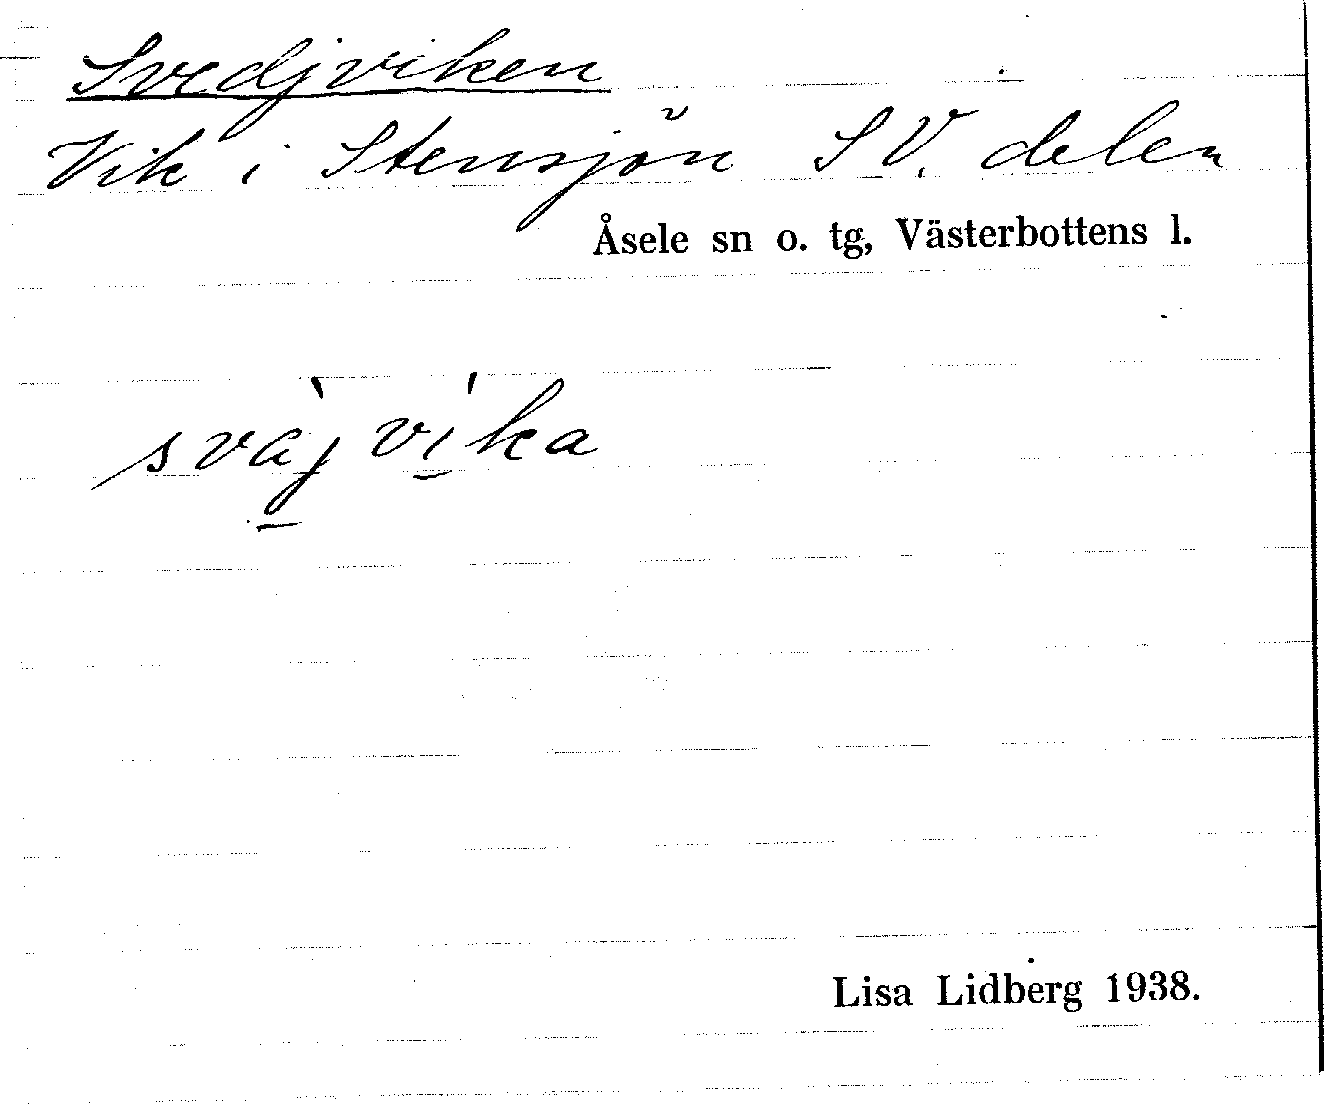 Svedjviken
Vik i Stensjön SV. delen
Åsele sn o. tg, Västerbottens l.
svàj̱ví̱ka
Lisa Lidberg 1938.